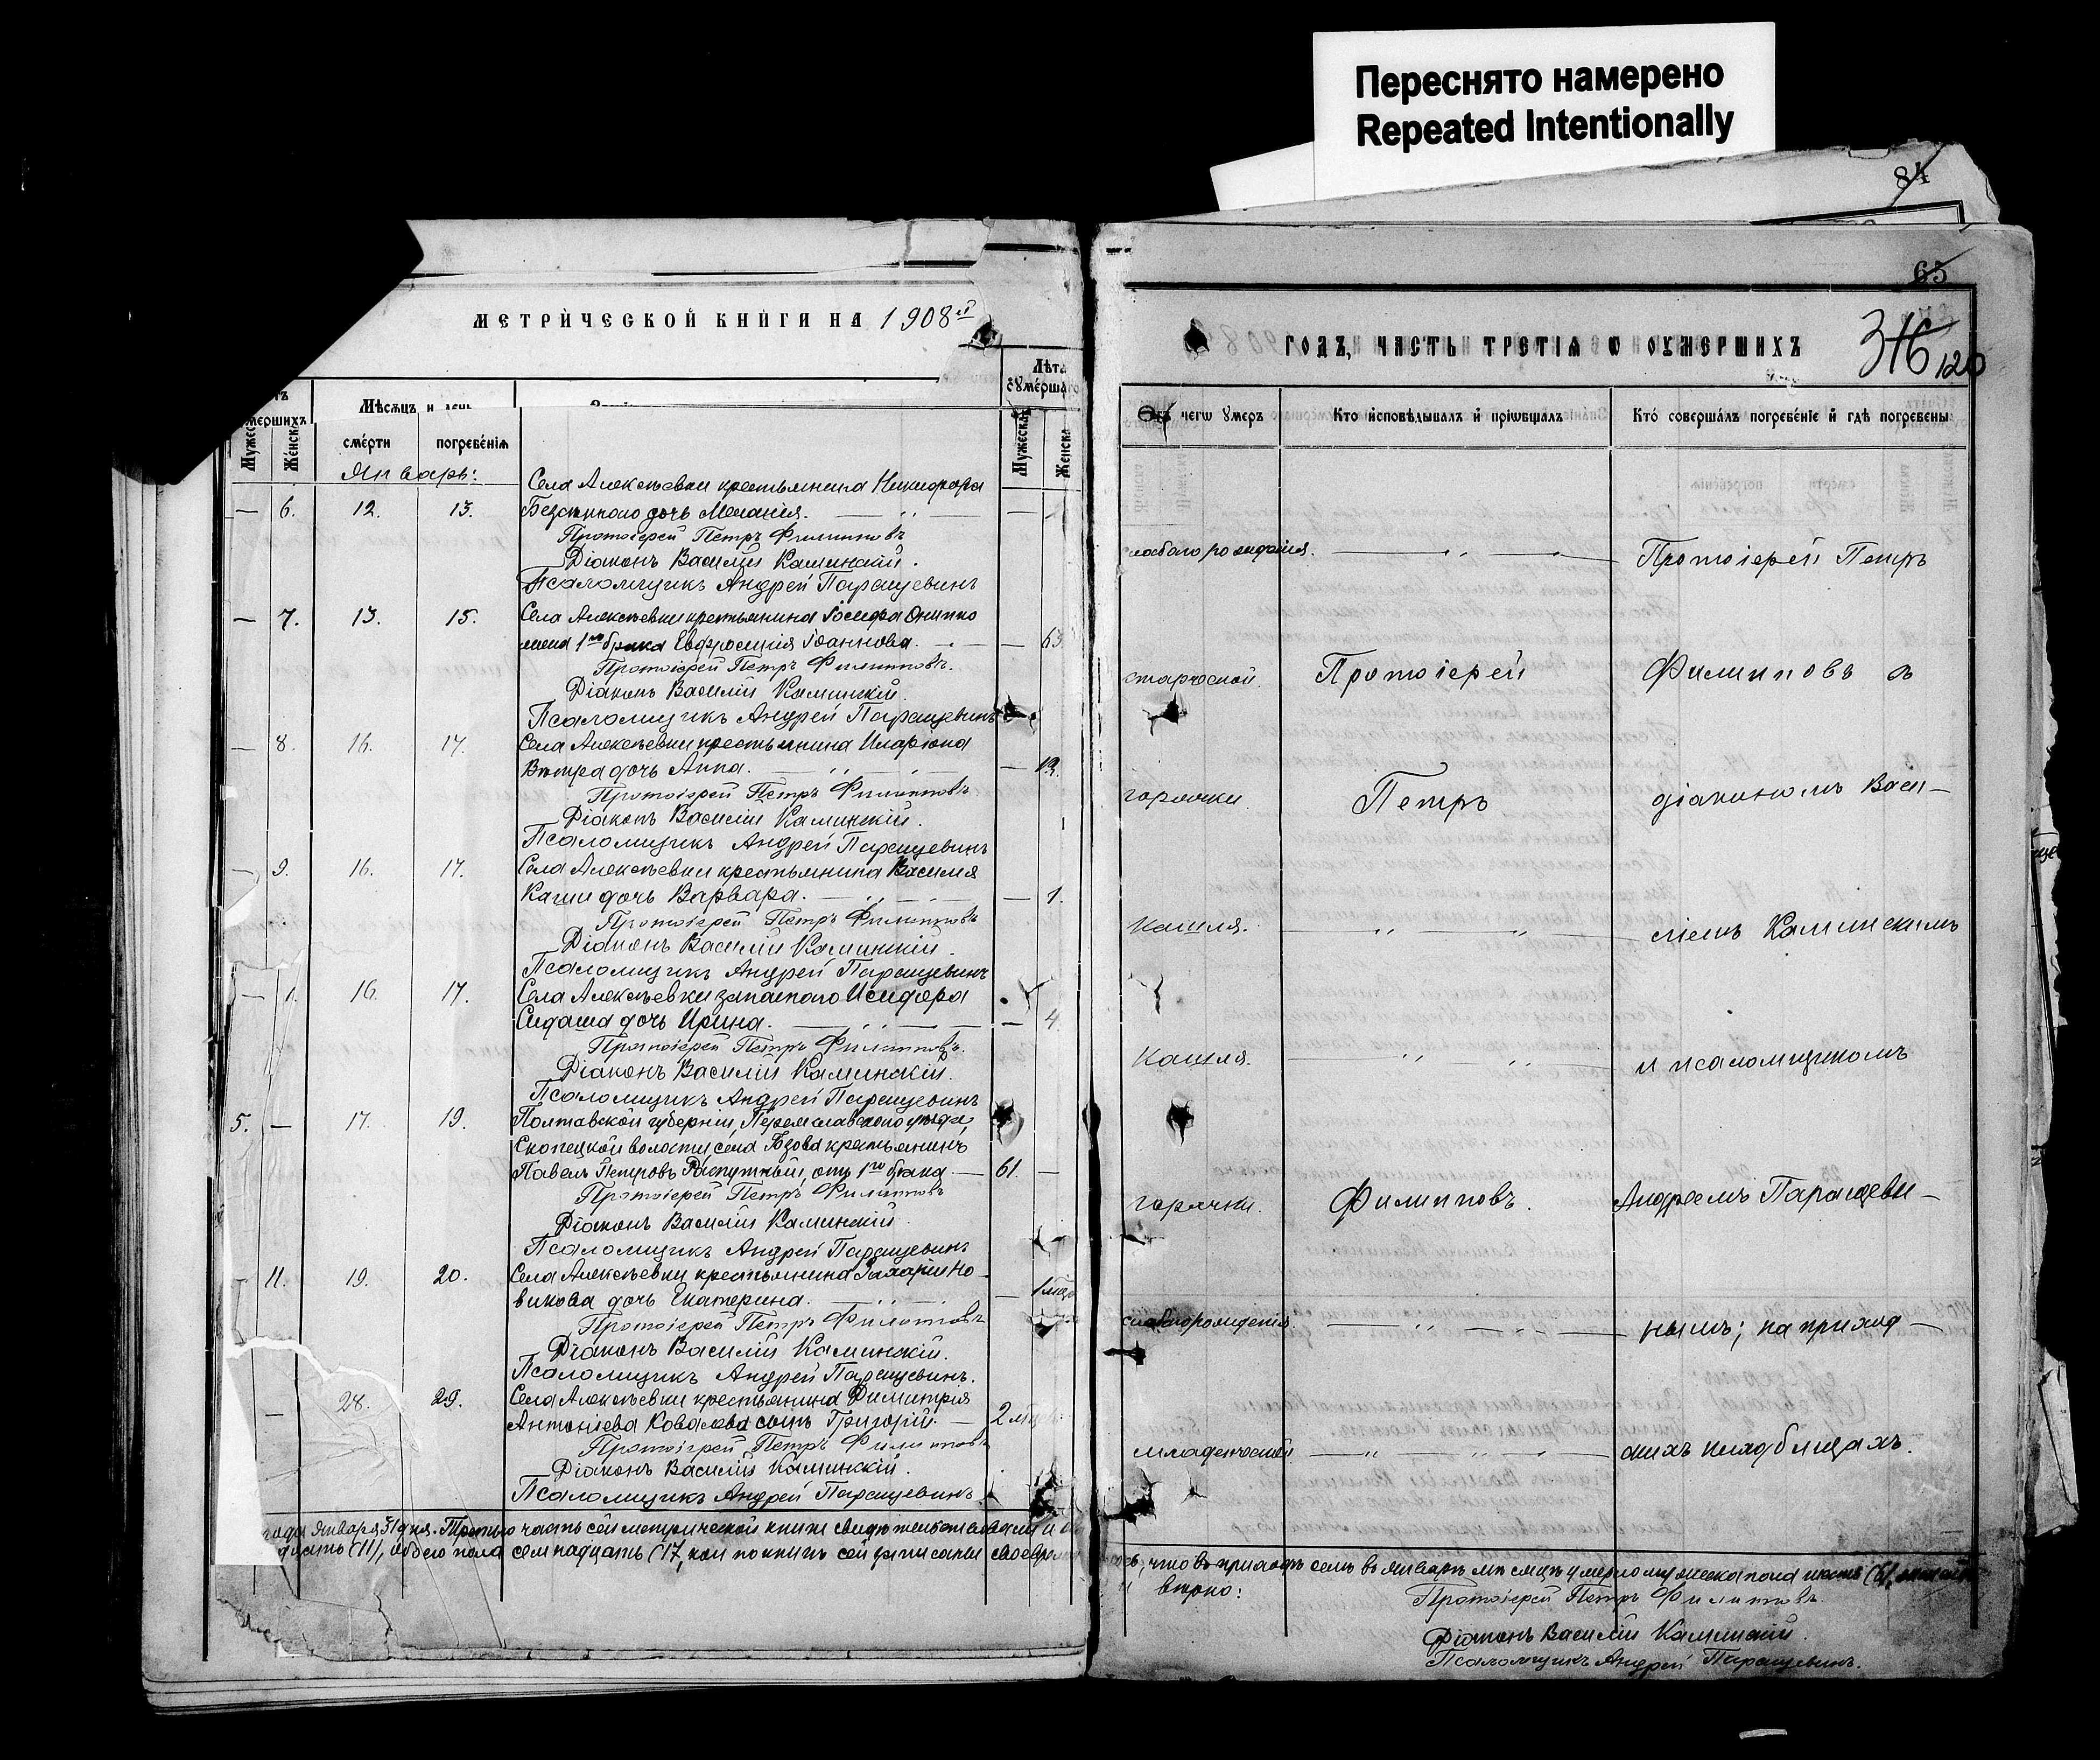 Переснято намерено
Repeated Intentionally
84
65
МЕТРИЧЕСКОЙ КНИГИ НА 1908й
ГОДЪ, ЧАСТЬ ТРЕТІЯ Ѡ ОУМЕРШИХЪ
316 120
Мѣсяцъ и день
Лѣта
оумершаго
Мужеска
Женска
смерти
погребенія
Мужеска
Женска
Отъ чегѡ умеръ
Кто исповѣдывалъ и пріѡбщалъ
Кто совершалъ погребеніе и гдѣ погребены
Январь:
Села Алексѣевки крестьянина Никифора
— 6. 12. 13. дочь Меланія. —
Протоіерей Петръ Филипповъ
Діаконъ Василій Каминскій.
Псаломщикъ Андрей Паращевинъ
слабаго рожденія.
Протоіерей Петръ
— 7. 13. 15. Села Алексѣевки крестьянина Іосифа Онипко
жена 1го брака Евфросинія Іоаннова. — 63
Протоіерей Петръ Филипповъ.
Діаконъ Василій Каминскій.
Псаломщикъ Андрей Паращевинъ
старческой.
Протоіерей
Филипповъ съ
— 8. 16. 17. Села Алексѣевки крестьянина Иларіона
Вѣтра дочь Анна. —
Протоіерей Петръ Филипповъ
Діаконъ Василій Каминскій.
Псаломщикъ Андрей Паращевинъ
горячки.
Петръ
діакономъ Васи-
— 9. 16. 17. Села Алексѣевки крестьянина Василія
Каши дочь Варвара. — 1.
Протоіерей Петръ Филипповъ
Діаконъ Василій Каминскій.
Псаломщикъ Андрей Паращевинъ
кашля.
ліемъ Каминскимъ
— 16. 17. Села Алексѣевки запаснаго Исидора
Сидаша дочь Ирина. — 4.
Протоіерей Петръ Филипповъ.
Діаконъ Василій Каминскій.
Псаломщикъ Андрей Паращевинъ
кашля.
и псаломщикомъ
5. — 17. 19. Полтавской губерніи, Переяславскаго уѣзда,
Скопецкой волости, села крестьянинъ
Павелъ Петровъ Распутный, отъ 1го брака — 61. —
Протоіерей Петръ Филипповъ
Діаконъ Василій Каминскій
Псаломщикъ Андрей Паращевинъ
горячки.
Филипповъ.
Андреемъ Паращеви-
11. 19. 20. Села Алексѣевки крестьянина Захарія Но-
викова дочь Екатерина. —
Протоіерей Петръ Филипповъ
Діаконъ Василій Каминскій.
Псаломщикъ Андрей Паращевинъ.
слабаго рожденія.
нымъ; на приход-
— 28. 29. Села Алексѣевки крестьянина Димитрія
Антоніева Ковалева сынъ Григорій. —
Протоіерей Петръ Филипповъ
Діаконъ Василій Каминскій.
Псаломщикъ Андрей Паращевинъ.
младенческой
скихъ кладбищахъ.
года Января 31 дня. Третью часть сей метрической книги
(11), обоего пола семнадцать (17, кои по книгѣ сей записаны
что въ приходѣ семъ въ январѣ мѣсяцѣ умерло мужеска пола
вѣрно:
Протоіерей Петръ Филипповъ
Діаконъ Василій Каминскій.
Псаломщикъ Андрей Паращевинъ.